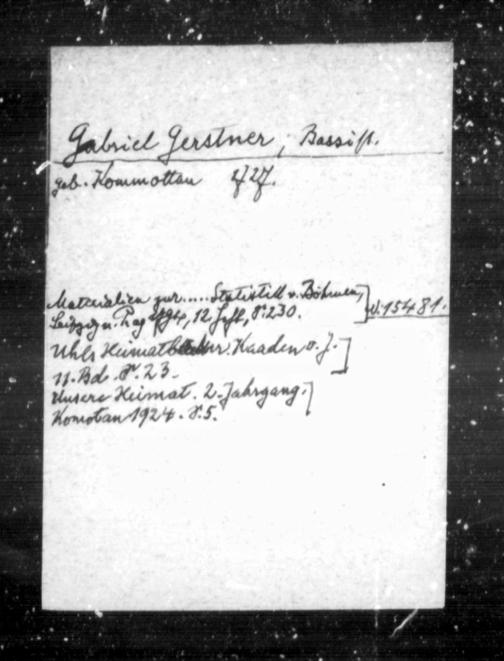 Gabriel Gerstner, Bassist.
geb. Kommottau 1727.
Materialien zur..... Statistik v. Böhmen,
Leipzig u. Prag 1794, 12. Heft, S. 230. 15481.
Uhls Heimatbücher. Kaaden o. J.
11. Bd. S. 23.
Unsere Heimat. 2. Jahrgang,
Komotau 1924. S. 5.